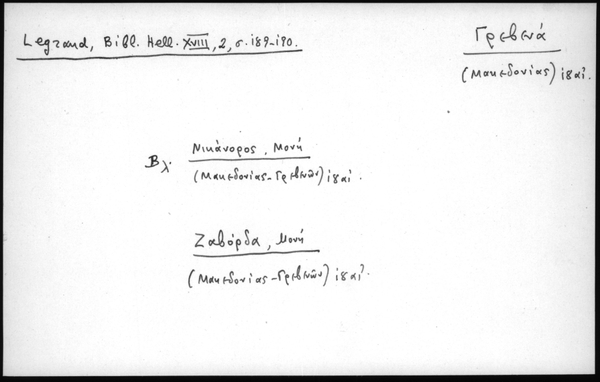 Legrand, Bibl. Hell. XVIII, 2, σ. 189-190.
Γρεβενά
(Μακεδονίας) ιθαί.
Βλ. Νικάνορος, Μονή
(Μακεδονίας-Γρεβενῶν)
Ζαβόρδα, Μονή
(Μακεδονίας-Γρεβενῶν)